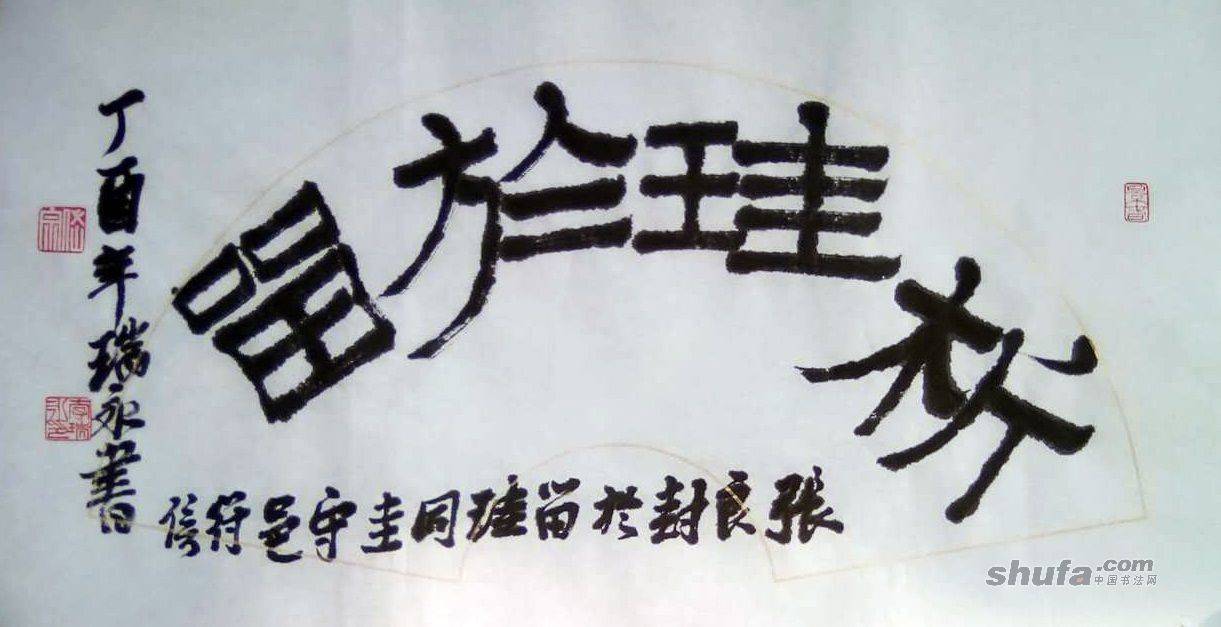 析珪於留
張良封於留珪同圭守邑符信
丁酉年瑞永書
李瑞永印
shufa.com
中国书法网